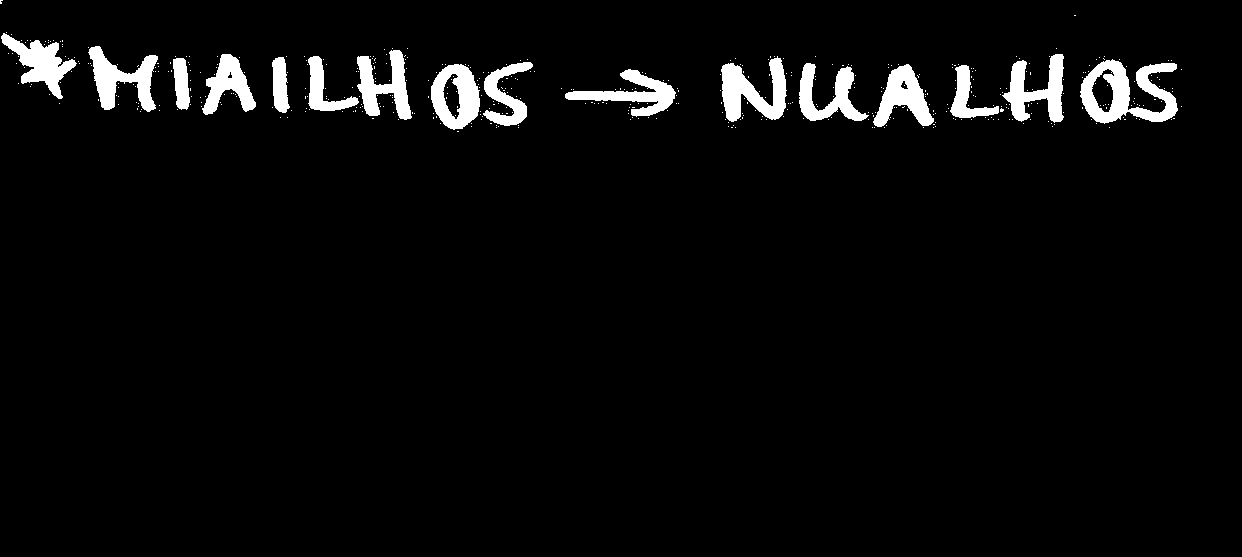 *MIAILHOS → NUALHOS